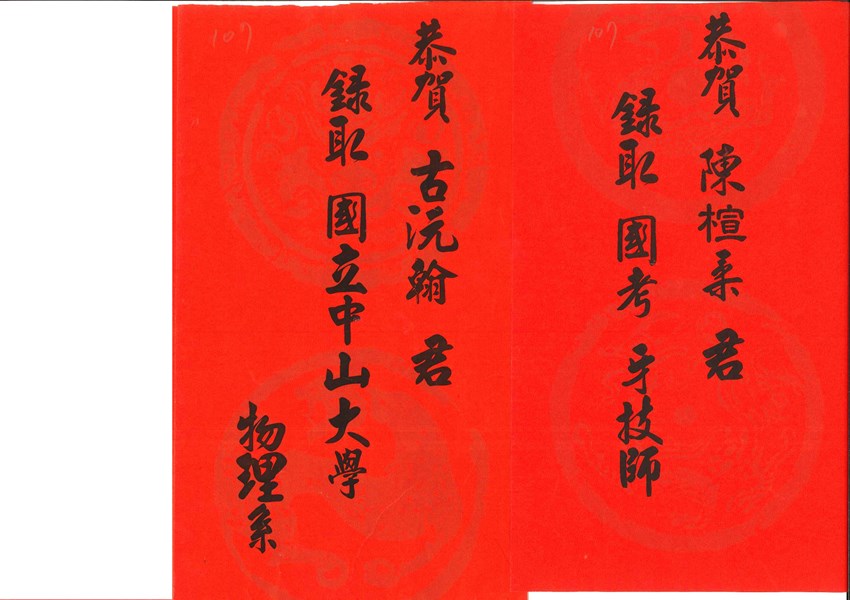 107
恭賀 陳楦柔 君
錄取 國考 牙技師
107
恭賀 古沅翰 君
錄取 國立中山大學
物理系